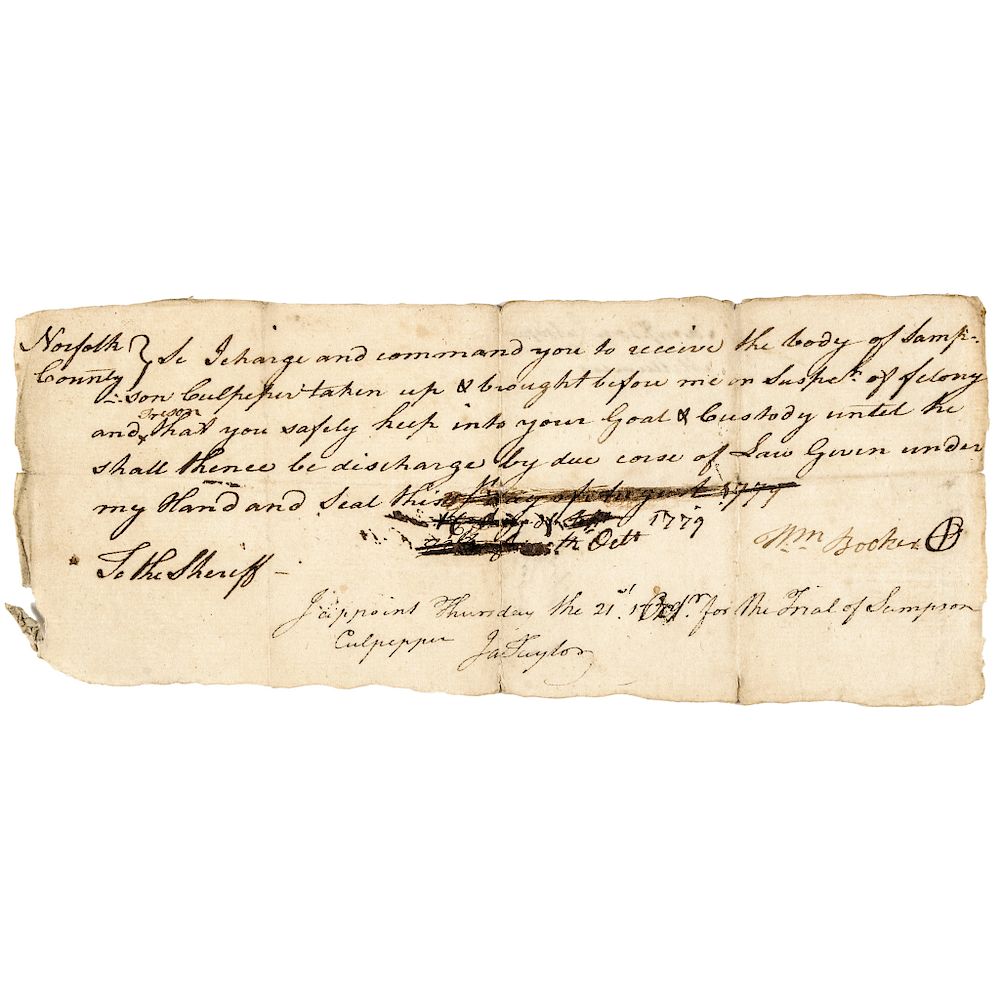 Norfolk } Sc I charge and command you to receive the body of Samp-
County } son Culpeper taken up & brought before me on Suspecn. of felony
Treson
and that you safely keep into your Goal & Custody until he
shall thence be discharge by due corse of Law Given under
my Hand and Seal this day of August 1779
day of 1779
th Octr
Wm Booker
To the Sheriff -
I appoint Thursday the 21st for the Trial of Sampson
Culpepper
Ja Taylor